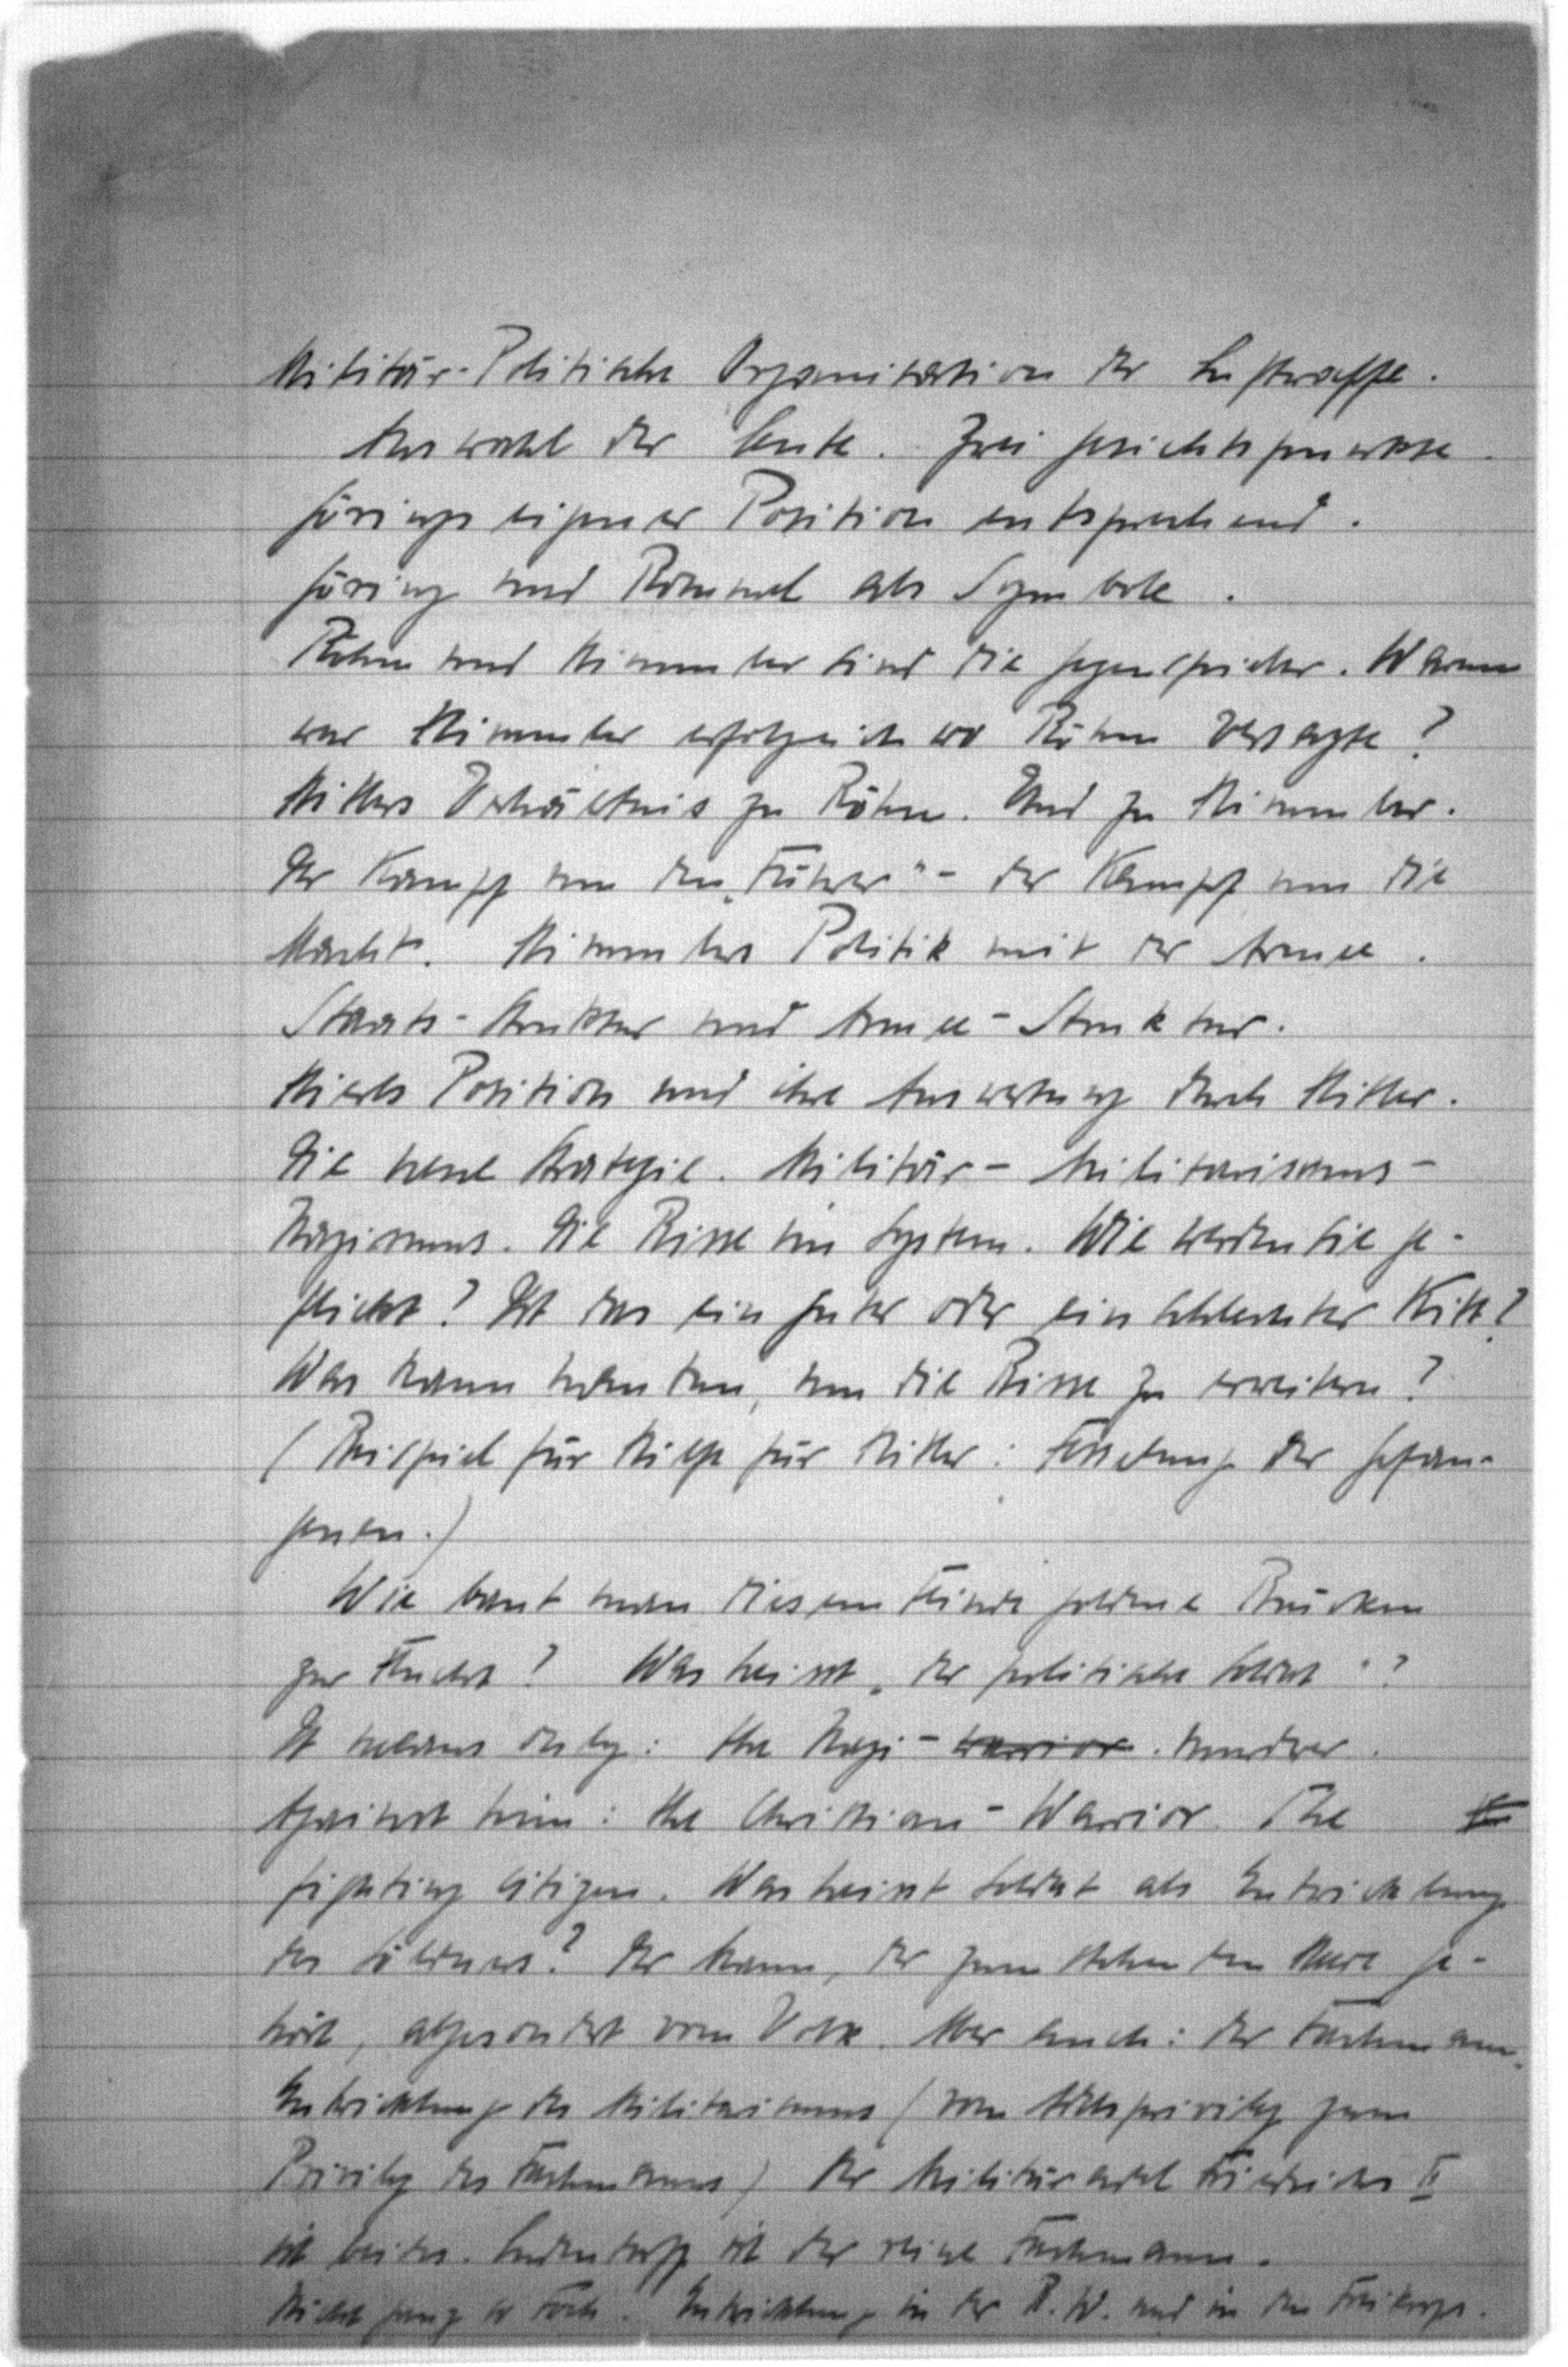 Militär-Politische Organisation der Luftwaffe.
Auswahl der Leute. Zwei Gesichtspunkte.
Görings eigener Position entsprechend.
Göring und Rommel als Symbole.
Röhm und Himmler sind die Gegenspieler. Warum
war Himmler erfolgreich wo Röhm versagte?
Hitlers Verhältnis zu Röhm. Und zu Himmler.
Der Kampf um den „Führer" - der Kampf um die
Macht. Himmlers Politik mit der Armee.
Staats-Struktur und Armee-Struktur.
Position und ihre Auswertung durch Hitler.
Die neue Strategie. Militär - Militarismus -
Nazismus. Die Risse im System. Wie werden sie ge-
flickt? Ist das ein guter oder ein schlechter Kitt?
Was kann man tun, um die Risse zu erweitern?
(Beispiel für Hilfe für Hitler: Fesselung der Gefan-
genen.)
Wie baut man diesem Feinde goldene Brücken
zur Flucht? Was heisst „der politische Soldat"?
It means only: the Nazi - warrior. murderer.
Against him: the Christian - Warrior. The
fighting citizen. Was heisst Soldat als Entwicklung
des Söldners? Der Mann, der zum stehenden Heere ge-
hört, abgesondert vom Volk. Aber auch: der Fachmann.
Entwicklung des Militarismus (vom Adelsprivileg zum
Privileg des Fachmanns) Der Militäradel Friedrichs II
ist beides. Ludendorff ist der reine Fachmann.
Nicht ganz so Foch. Entwicklung in der R.W. und in den Freikorps.